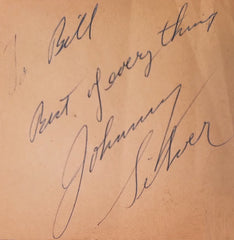 To Bill
Best of everything
Johnny
Silver